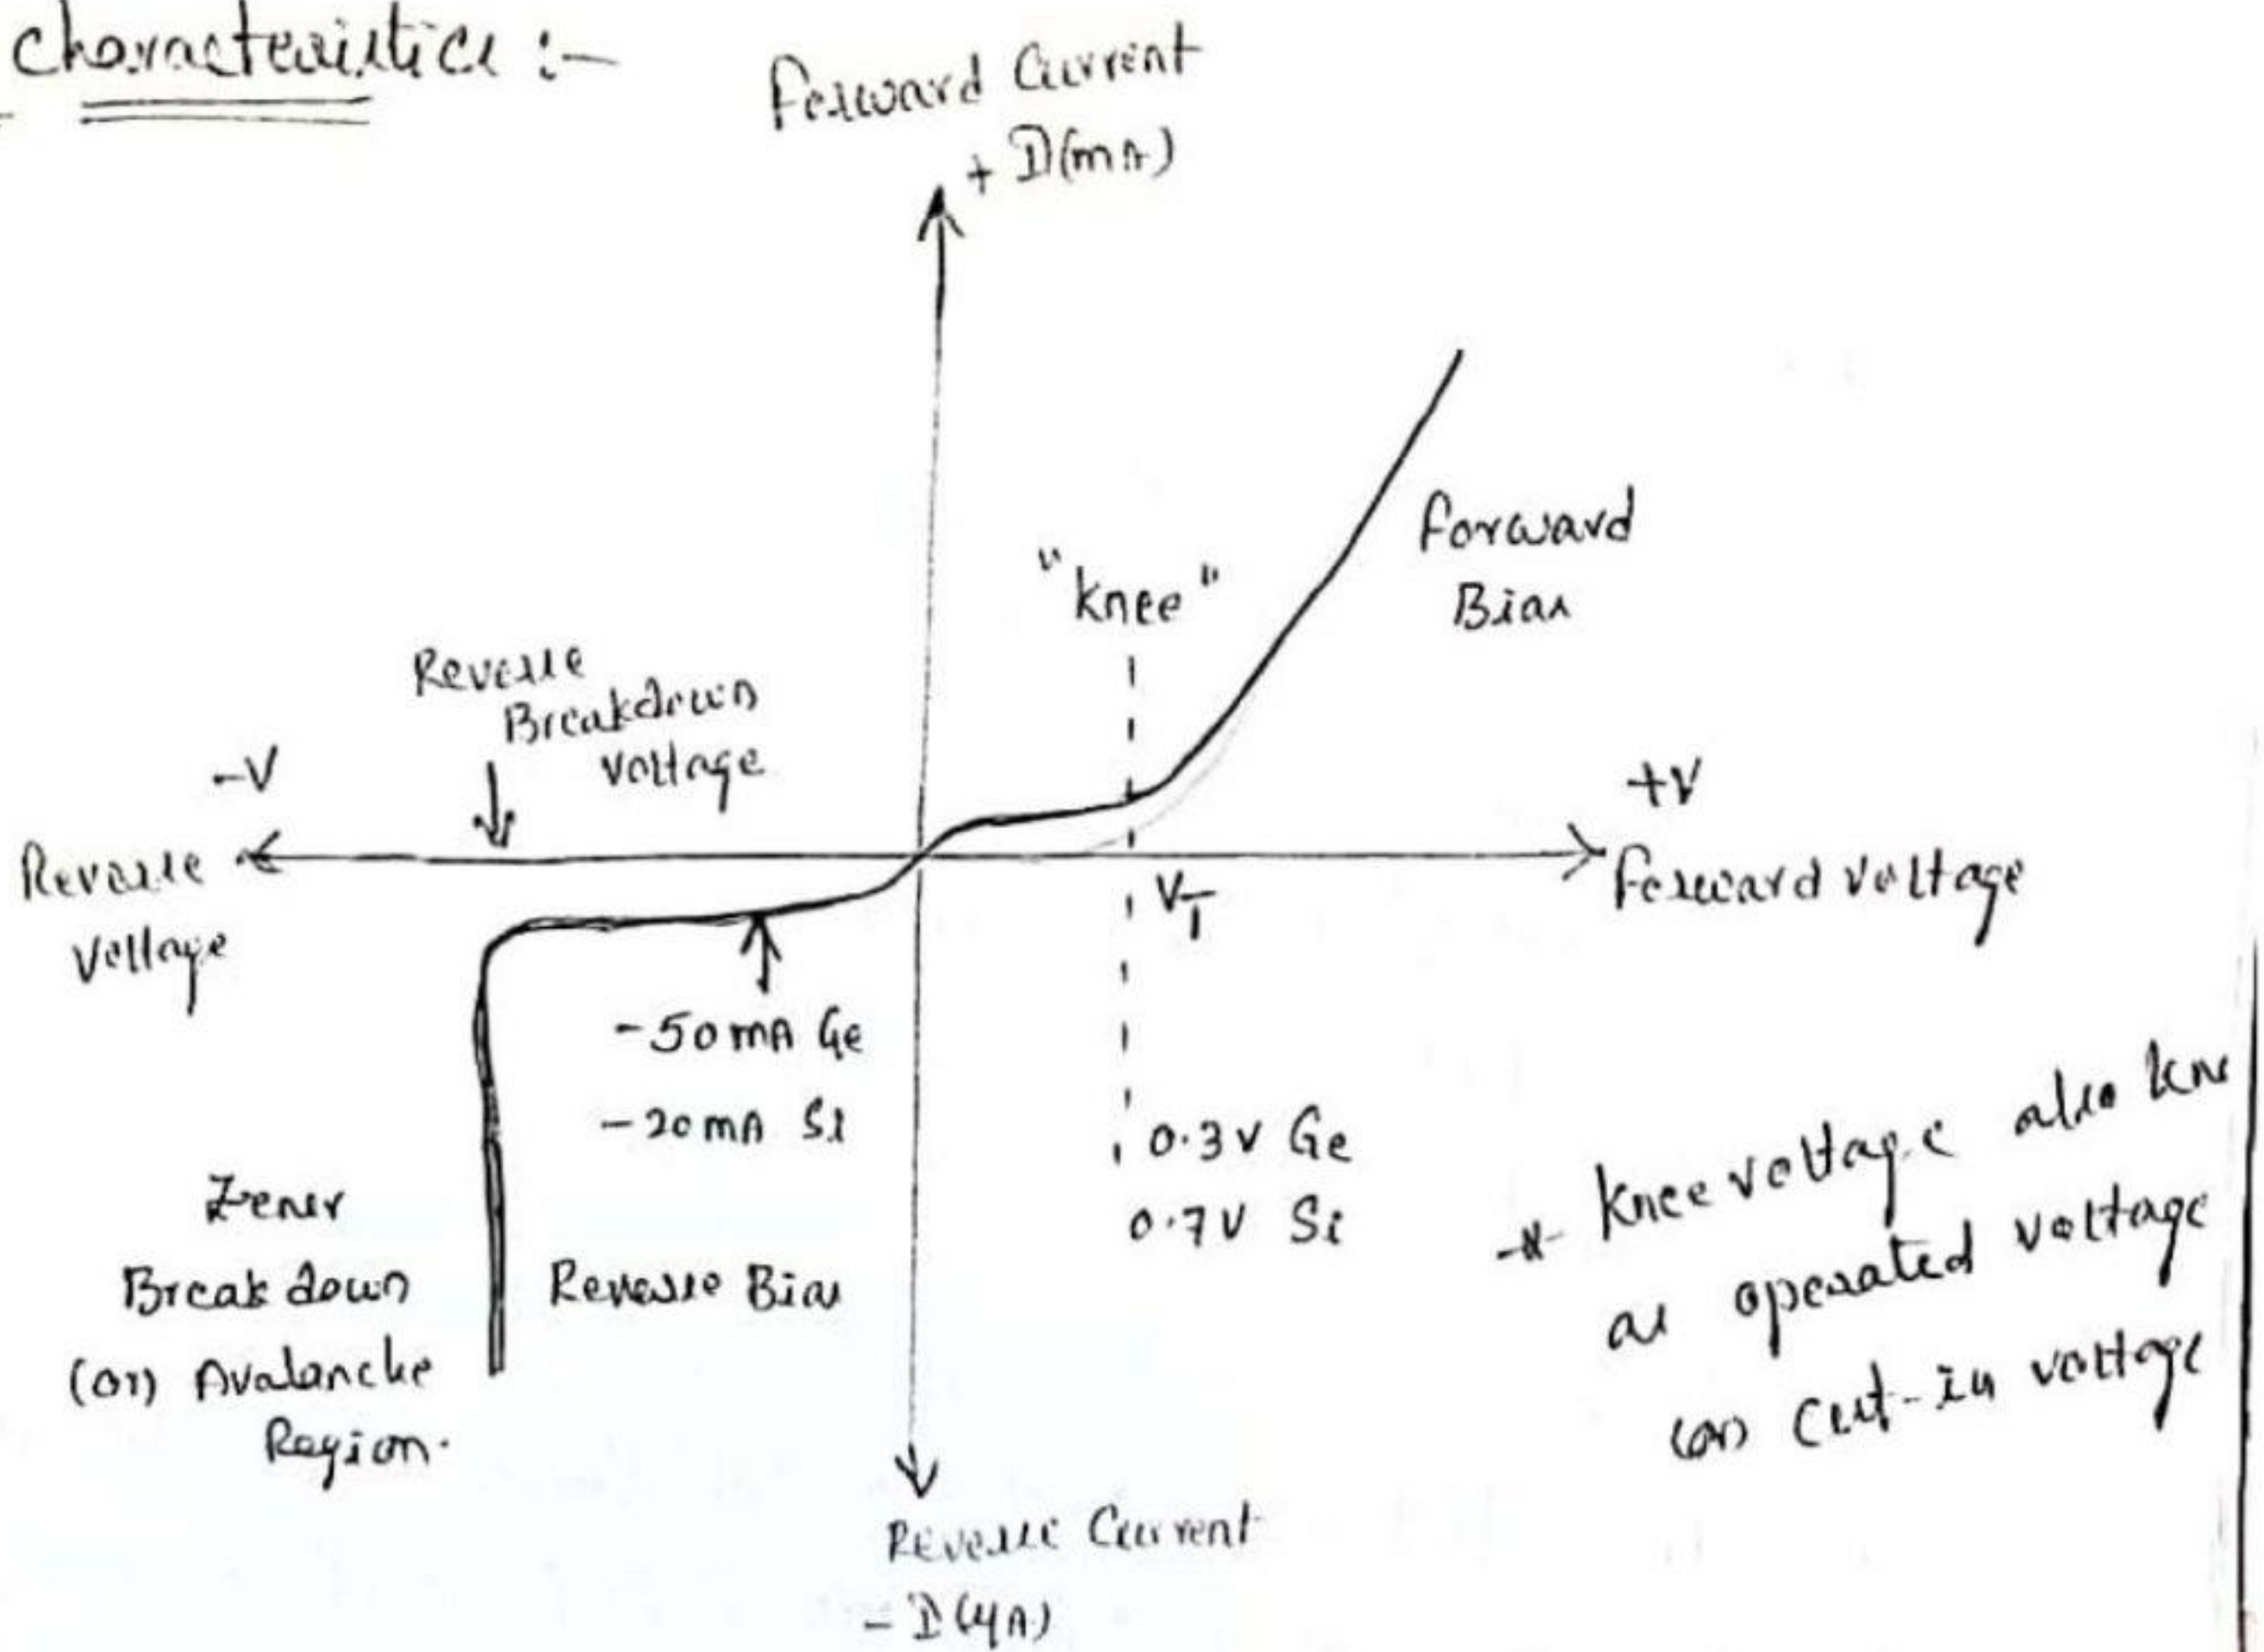 characteristics :-
Forward Current
+ I(mA)
Forward
Bias
"knee"
Reverse
Breakdown
voltage
-V
+V
Reverse
Voltage
Forward voltage
VT
-50mA Ge
-20mA Si
0.3V Ge
0.7V Si
Zener
Breakdown
(or) Avalanche
Region.
Reverse Bias
* Knee voltage also kn
as operated voltage
(or) Cut-in voltage
Reverse Current
- I(μA)